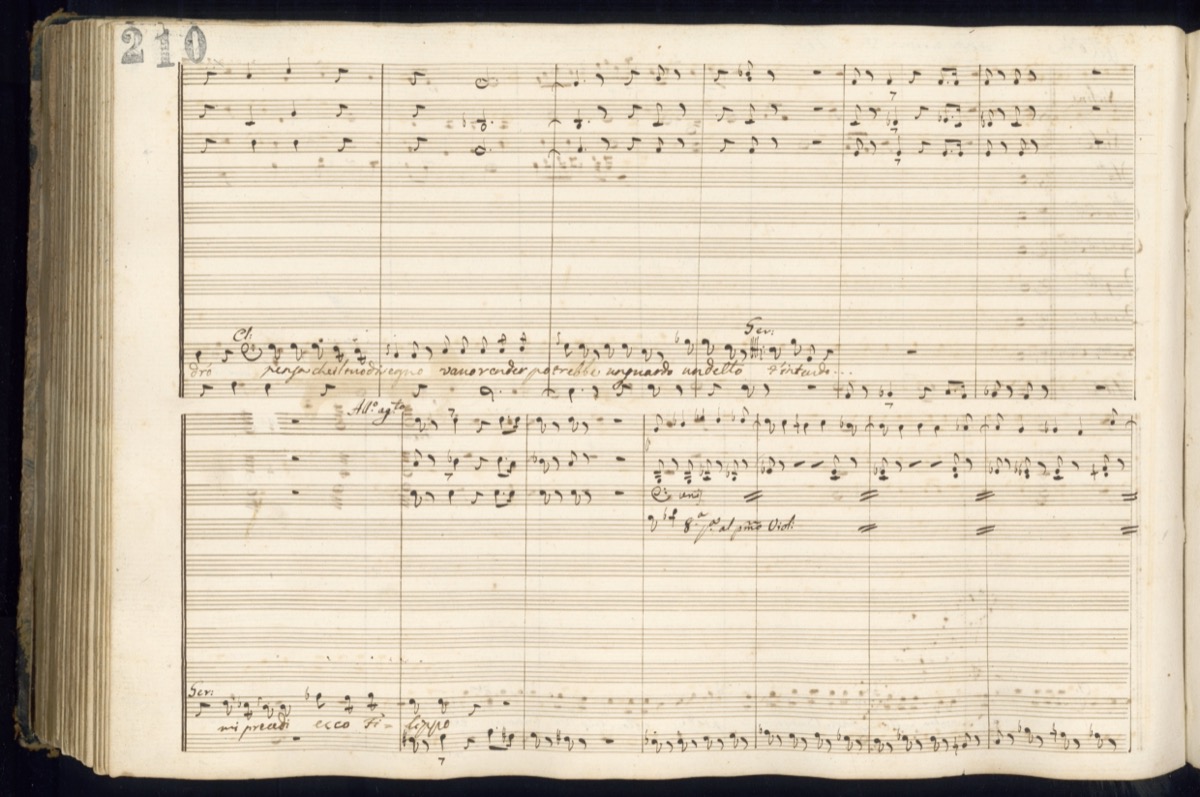 210
Cl:
Ser:
drò pensa che il mio disegno vano render potrebbe un guardo un detto t'intendo...
All.º ag.to
unis
8.ª p.ª al p.mo Viol:
Ser:
mi precedi ecco Fi- lippo